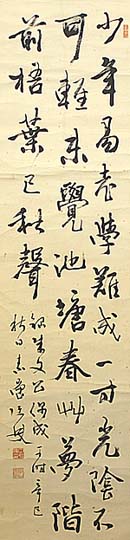 少年易老學難成一寸光陰不
可輕未覺池塘春艸夢階
前梧葉已秋聲
錄朱文公偶成一首辛巳
秋日